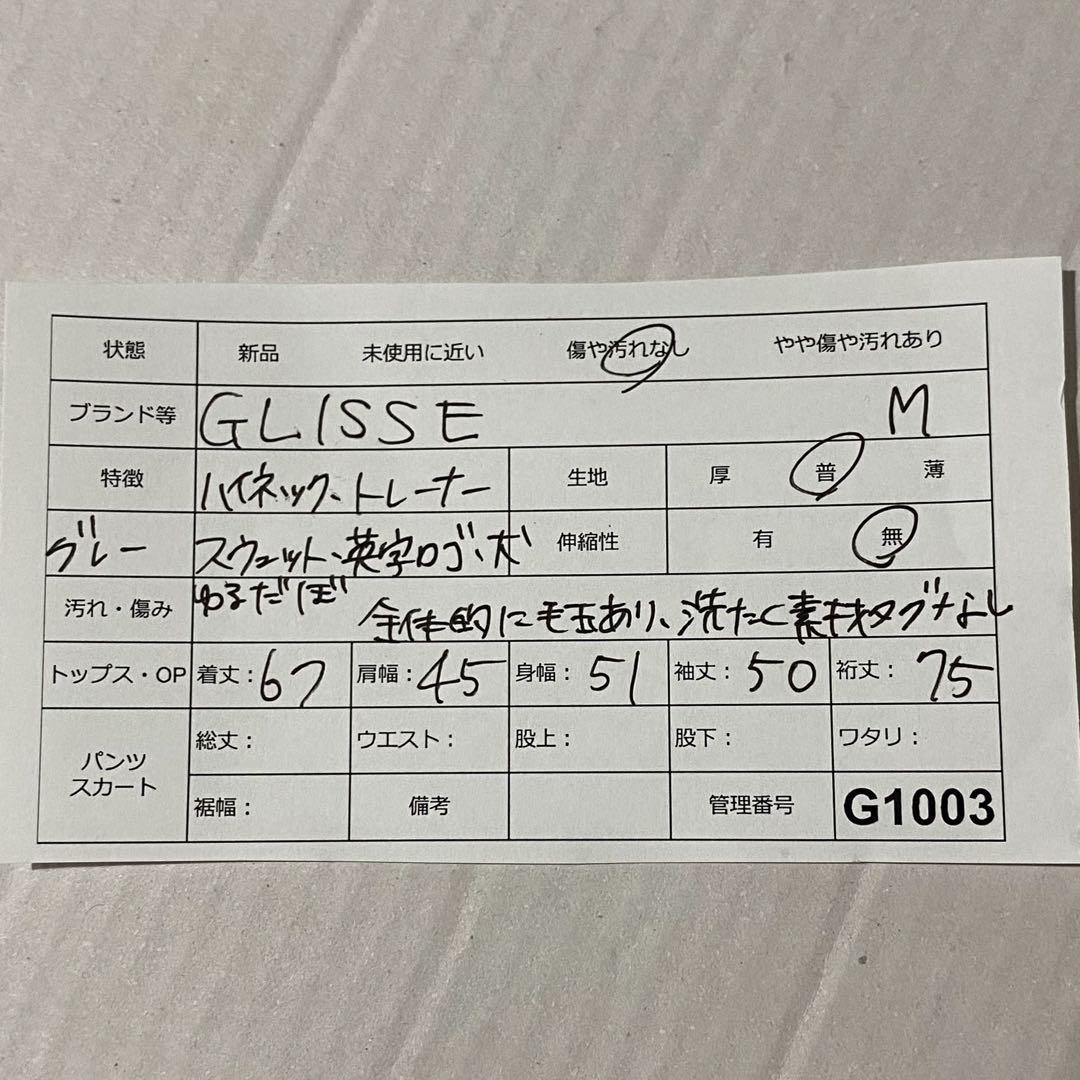 状態 新品 未使用に近い 傷や汚れなし やや傷や汚れあり
ブランド等 GLISSE M
特徴 ハイネック、トレーナー 生地 厚 普 薄
グレー スウェット、英字ロゴ、犬 伸縮性 有 無
汚れ・傷み ゆるだぼ 全体的に毛玉あり、洗たく素材タグなし
トップス・OP 着丈：67 肩幅：45 身幅：51 袖丈：50 裄丈：75
パンツ スカート 総丈： ウエスト： 股上： 股下： ワタリ：
裾幅： 備考 管理番号 G1003